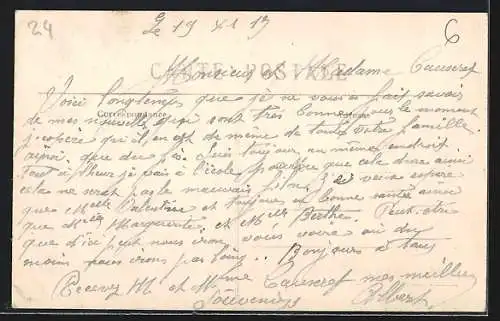 24
Le 19 XI 15
6
CARTE POSTALE
Monsieur et Madame Causeret
Voici longtemps que je ne vous ai fait savoir
Correspondance
de mes nouvelles qui sont très bonnes pour le moment
j'espère qu'il en est de même de toute votre famille.
que du je suis toujours au même endroit
tout à l'heure je vais à l'école que cela dure ainsi
cela ne serait pas le mauvais j'ose espère
que Melle Valentine est toujours en bonne santé ainsi
que Melle Marguerite et Melle Berthe. Peut-être
que d'ici peut nous irons vous voire au
moins nous irons pas loin.. Bonjours à tous
Recevez M et Mme Causeret mes meilleurs
Souvenirs Albert